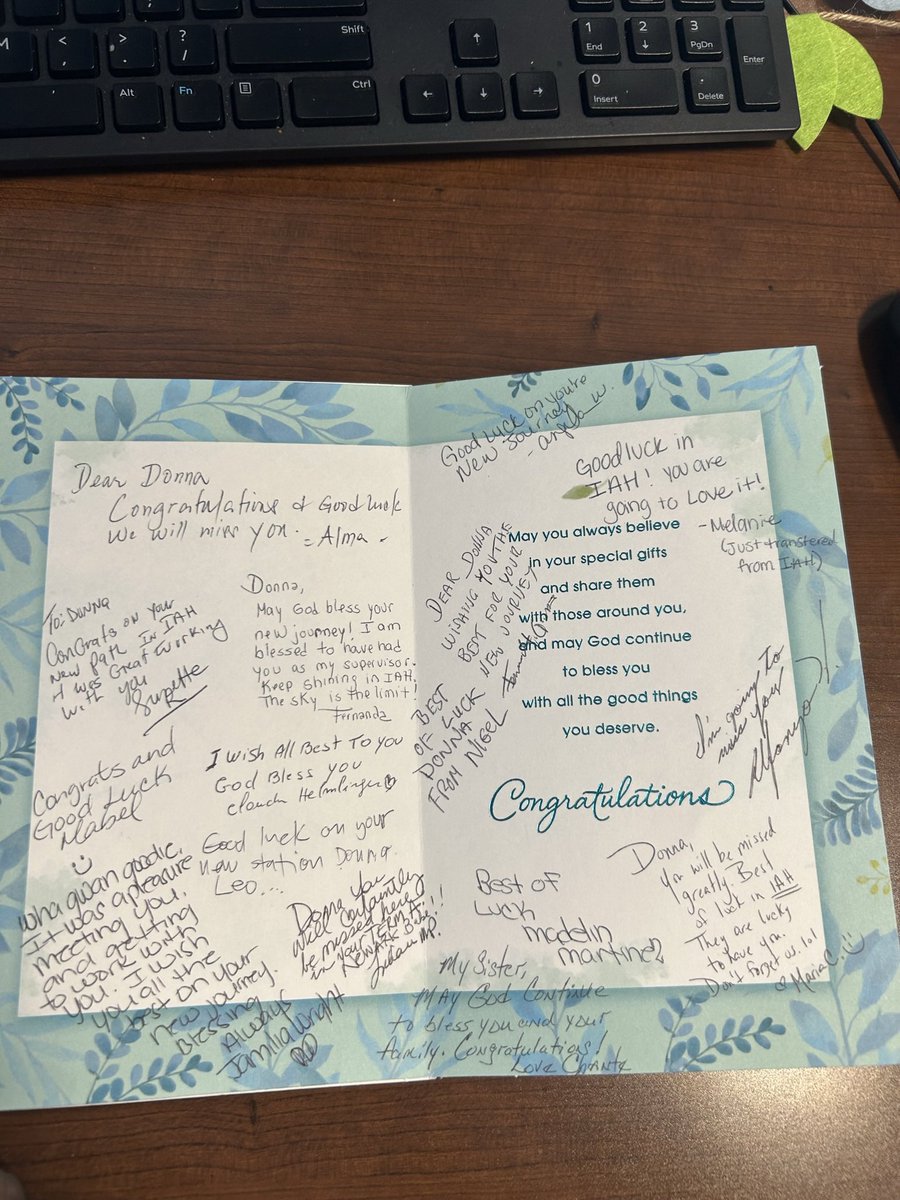 M
<
,
>
.
?
/
Shift
↑
1
End
2
↓
3
PgDn
Enter
Alt
Fn
Ctrl
←
↓
→
0
Insert
.
Delete
Dear Donna
Congratulations & Good luck
We will miss you.
- Alma -
To: DONNA
Congrats on your
New path In IAH
It was Great working
with you
Suzette
Donna,
May God bless your
new journey! I am
blessed to have had
you as my supervisor.
Keep shining in IAH.
The sky is the limit!
Fernanda
Congrats and
Good Luck
Mabel
I Wish All Best To you
God Bless you
Good luck on your
new station Donna.
Leo...
wha gwan goodie.
It was a pleasure
meeting you.
and getting
to work with
you. I wish
you all the
best on your
new journey.
Blessing
Always
Jamilia Wright
Donna you
will certainly
be missed here
in your TERM A.
NEWARK
Good Luck on you're
New Journey
Good luck in
IAH! you are
going to Love it!
- Melanie
(Just transfered
from IAH)
DEAR DONNA
WISHING YOU THE
BEST FOR YOUR
NEW JOURNEY
BEST
OF LUCK
DONNA
FROM NIGEL
May you always believe
in your special gifts
and share them
with those around you,
and may God continue
to bless you
with all the good things
you deserve.
Congratulations
I'm going to
miss you
Best of
Luck
madelin
martinez
Donna,
You will be missed
greatly. Best
of luck in IAH
They are lucky
to have you.
Don't forget us lol
Maria C.
My Sister,
MAY God Continue
to bless you and your
family. Congratulations!
Love